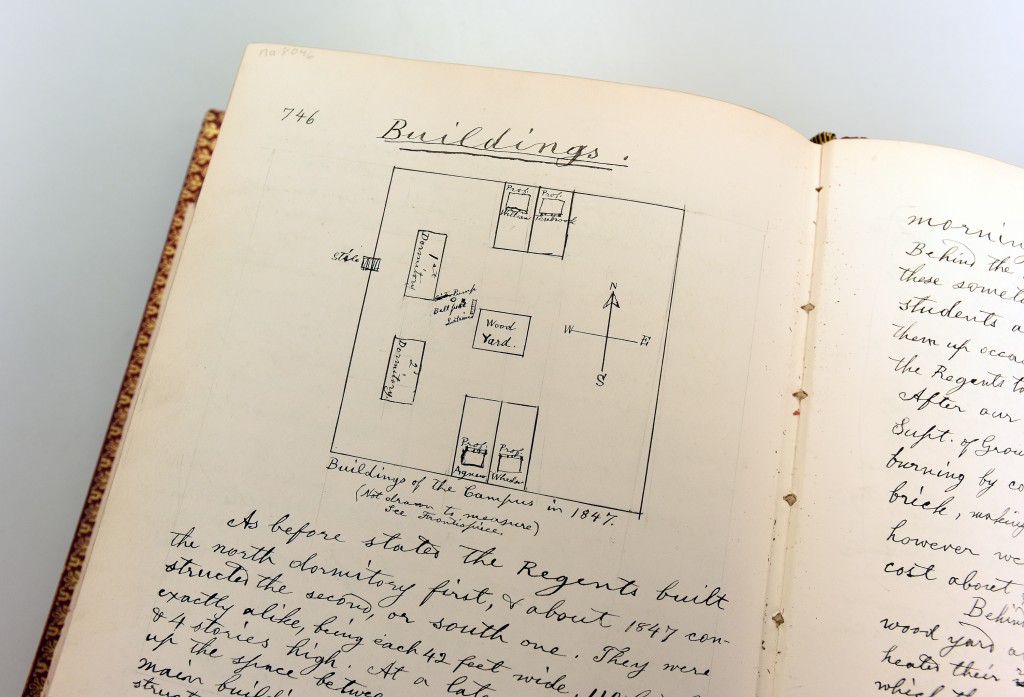 746
Buildings.
Prof. Prof.
William Tenbrook
Dormitory 1st
Stile
Pump
Ball post
Wood
Yard.
N
W E
S
Dormitory 2d
Prof. Prof.
Agnew Wheedon
Buildings of the Campus in 1847.
(Not drawn to measure)
See Frontispiece.
As before stated the Regents built
the north dormitory first, & about 1847 con-
structed the second, or south one. They were
exactly alike, being each 42 feet wide,
& 4 stories high. At a late
up the space betwe
main build
struct
mornin
Behind the
these somet
students a
them up occa
the Regents to
After our
Supt. of Grou
burning by co
brick, making
however we
cost about
Behin
wood yard a
heated their
which